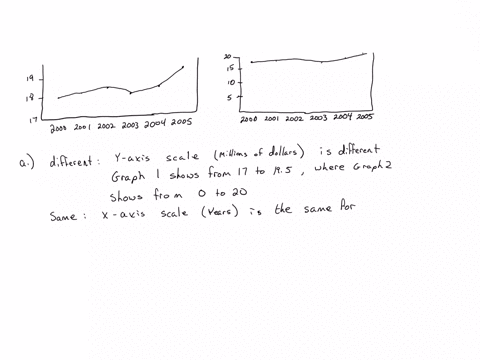 19
18
17
2000 2001 2002 2003 2004 2005
20
15
10
5
2000 2001 2002 2003 2004 2005
a.) different: Y-axis scale (Millions of dollars) is different
Graph 1 shows from 17 to 19.5, where Graph 2
shows from 0 to 20
Same: X-axis scale (Years) is the same for